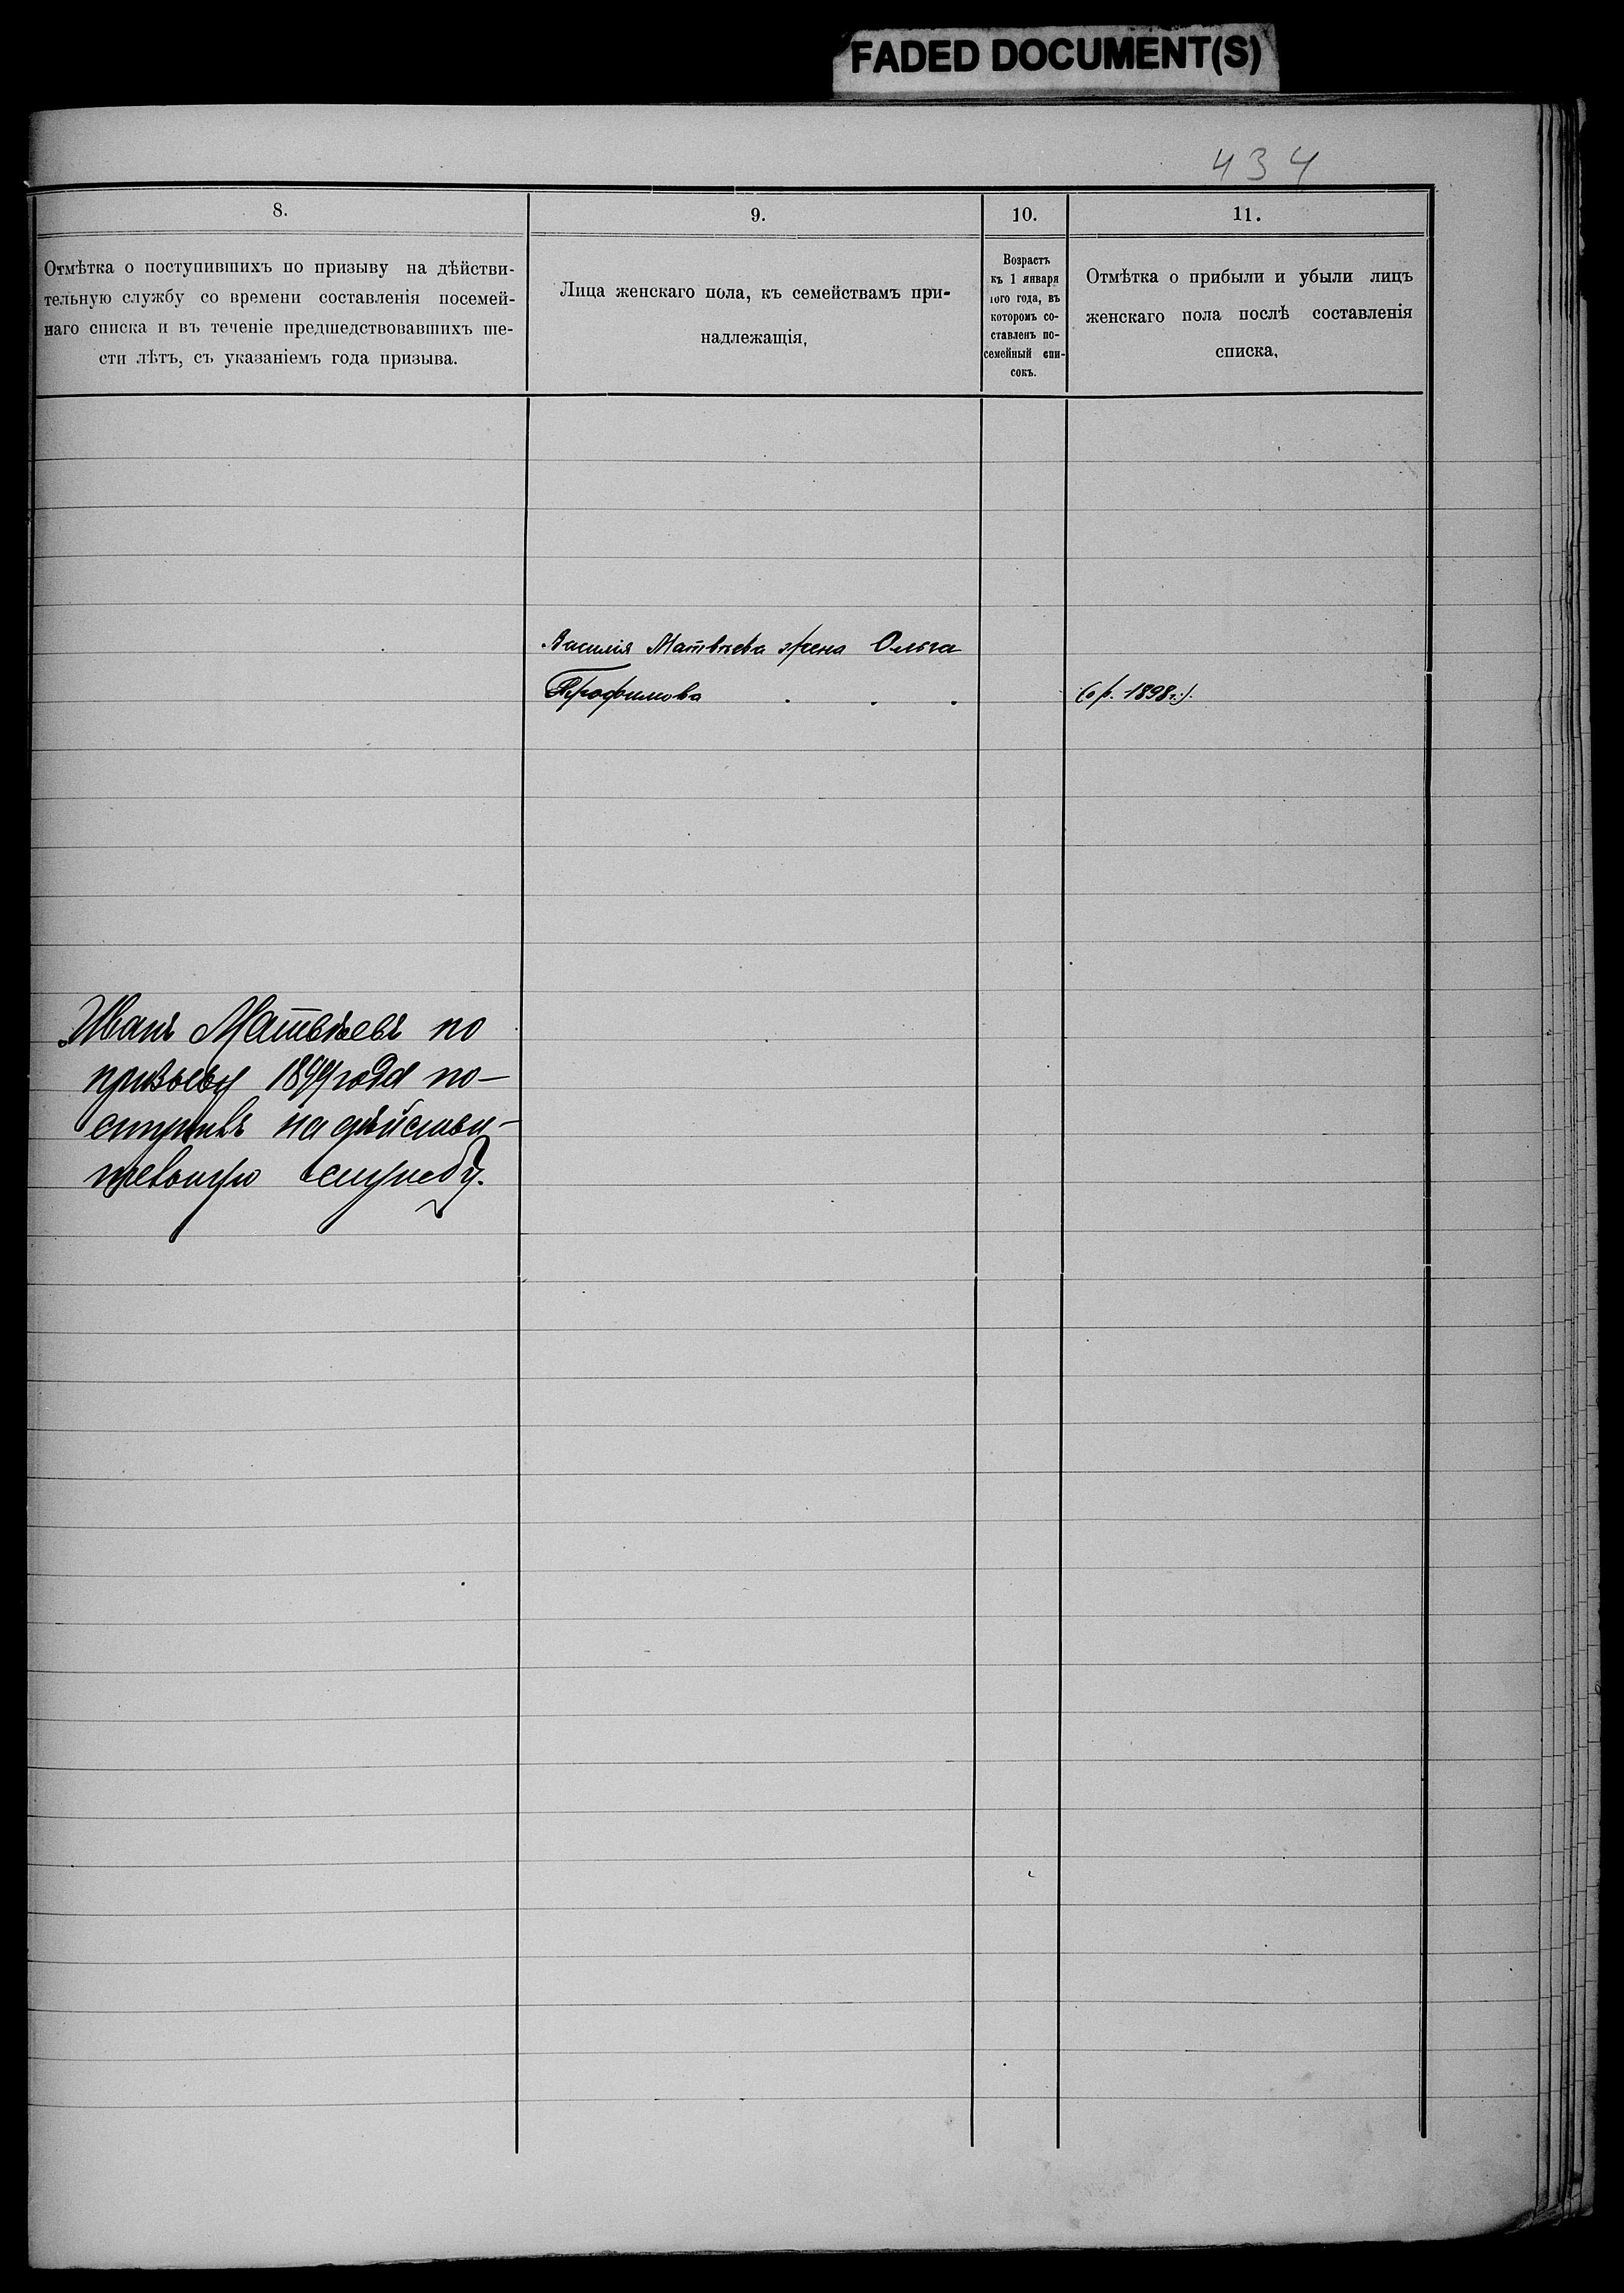 FADED DOCUMENT(S)
434
8.
Отмѣтка о поступившихъ по призыву на дѣйстви-
тельную службу со времени составленія посемей-
наго списка и въ теченіе предшедствовавшихъ ше-
сти лѣтъ, съ указаніемъ года призыва.
9.
Лица женскаго пола, къ семействамъ при-
надлежащія,
10.
Возрастъ
къ 1 января
того года, въ
которомъ со-
ставленъ по-
семейный спи-
сокъ.
11.
Отмѣтка о прибыли и убыли лицъ
женскаго пола послѣ составленія
списка,
Василія Матвѣева жена Ольга
Трофимова . . .
1898 г.).
Иванъ Матвѣевъ по
призыву 1899 года по-
ступилъ на дѣйстви-
тельную службу.